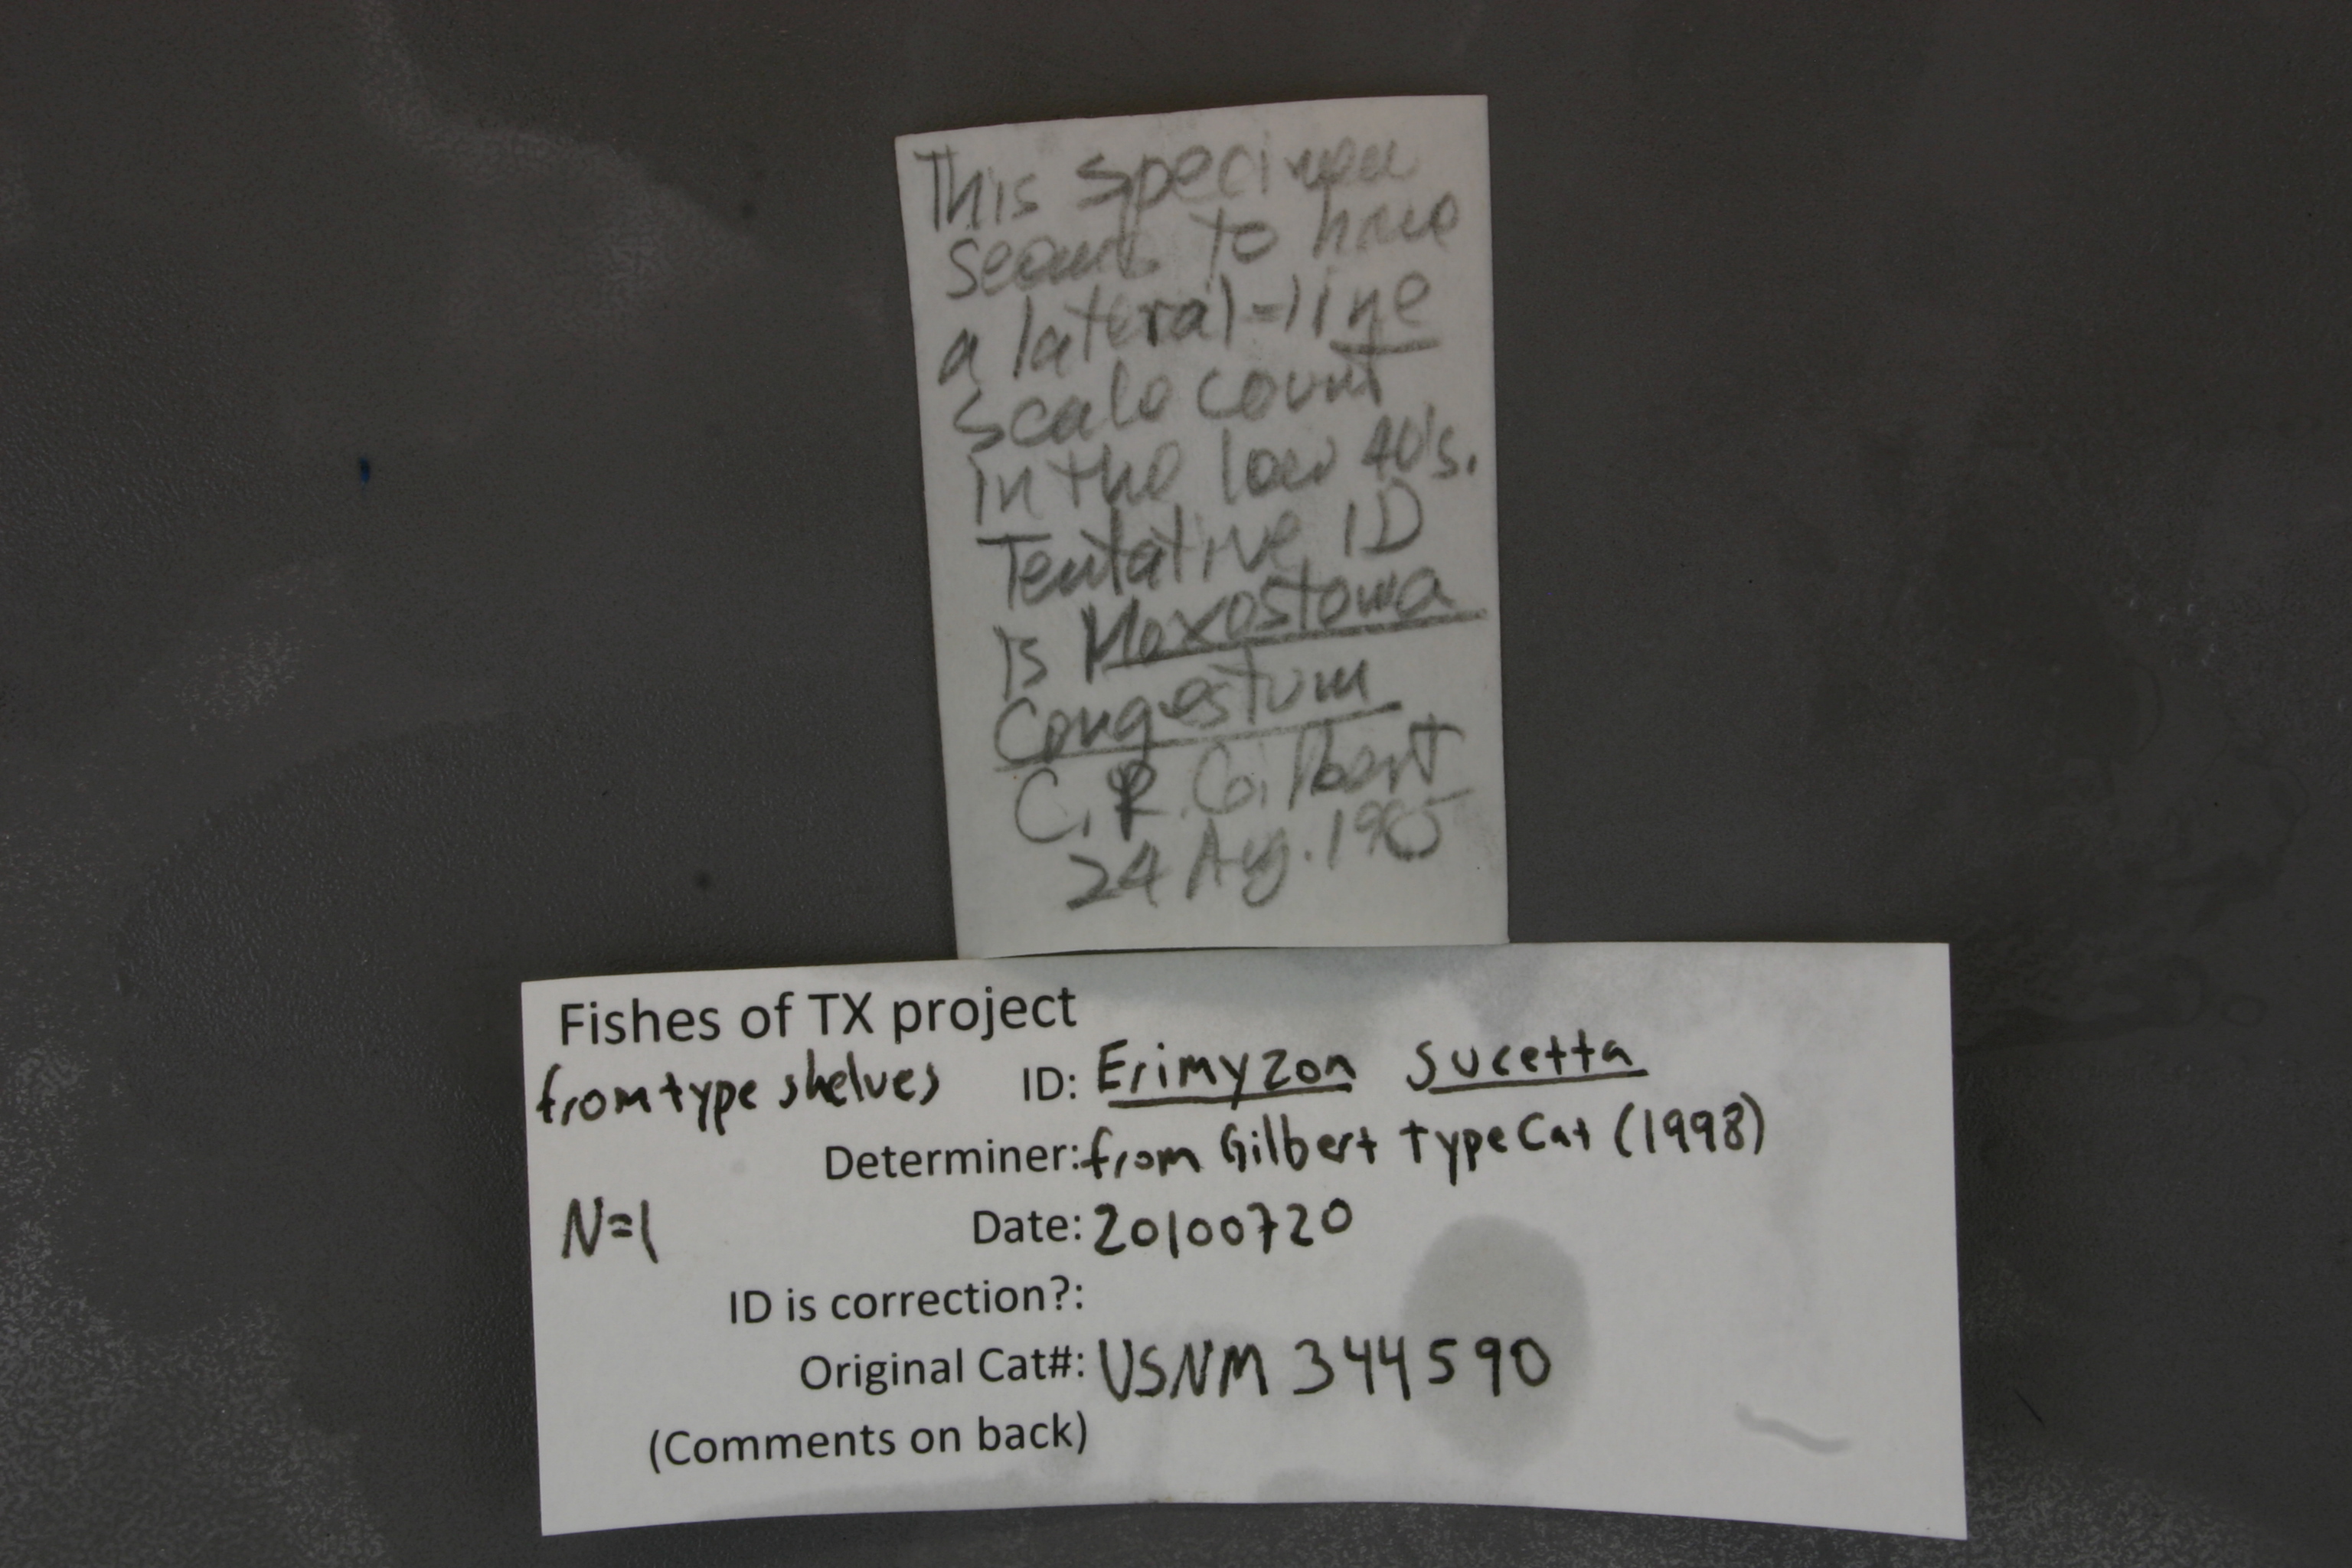 This specimen
seems to have
a lateral-line
scale count
in the low 40's.
Tentative ID
is Moxostoma
congestum
C. R. Gilbert
24 Aug.
Fishes of TX project
from type shelves ID: Erimyzon sucetta
Determiner: from Gilbert type Cat (1998)
N=1 Date: 20100720
ID is correction?:
Original Cat#: USNM 344590
(Comments on back)